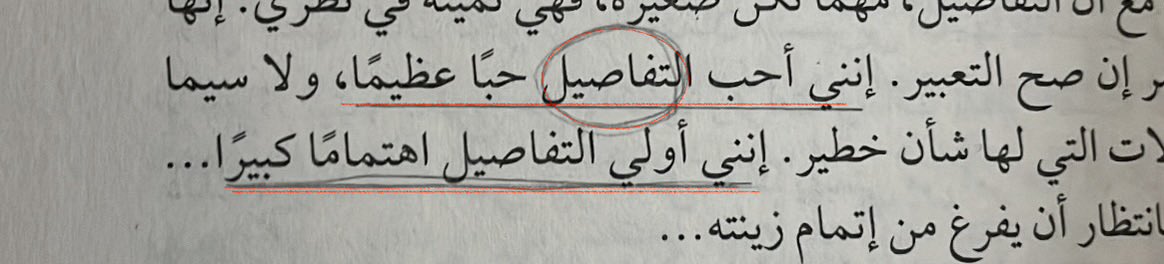 مع أن التفاصيل، مهما تكن صغيرة، فهي ثمينة في نظري. إنها
ر إن صح التعبير. إنني أحب التفاصيل حبًا عظيمًا، ولا سيما
لات التي لها شأن خطير. إنني أولي التفاصيل اهتمامًا كبيرًا...
انتظار أن يفرغ من إتمام زينته...